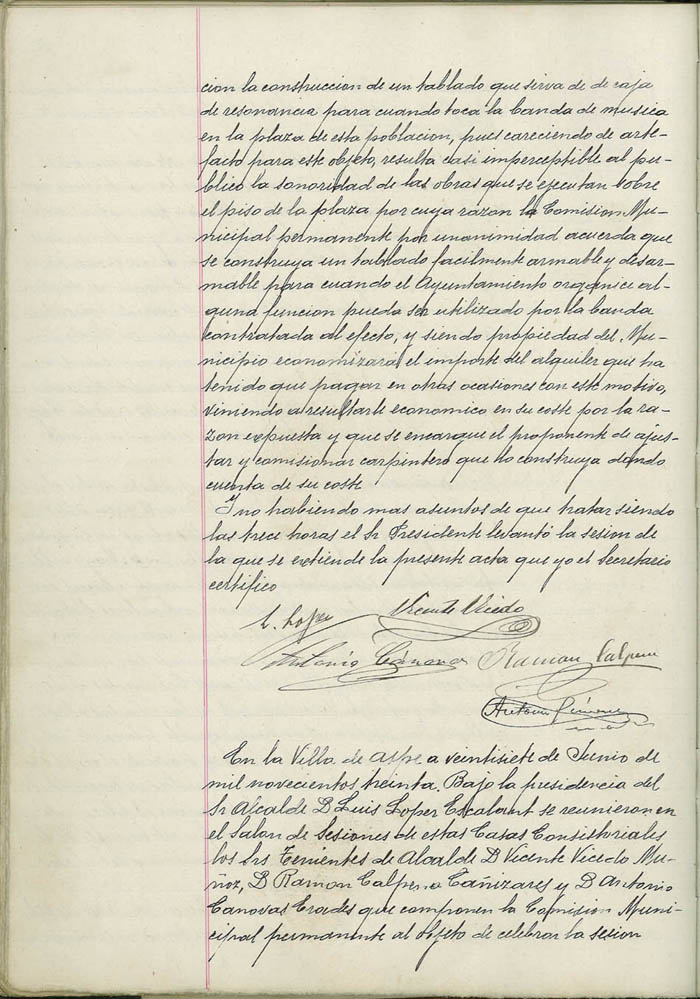 cion la construccion de un tablado que sirva de de caja
de resonancia para cuando toca la banda de musica
en la plaza de esta poblacion, pues careciendo de arte-
facto para este objeto, resulta casi imperceptible al pu-
blico la sonoridad de las obras que se ejecutan sobre
el piso de la plaza por cuya razon la Comision Mu-
nicipal permanente por unanimidad acuerda que
se construya un tablado facilmente armable y desar-
mable para cuando el Ayuntamiento organice al-
guna funcion pueda ser utilizado por la banda
contratada al efecto, y siendo propiedad del Mu-
nicipio economizará el importe del alquiler que ha
tenido que pagar en otras ocasiones con este motivo,
viniendo a resultarle economico en su coste por la ra-
zon expuesta y que se encargue el proponente de ajus-
tar y comisionar carpintero que lo construya dando
cuenta de su coste
Y no habiendo mas asuntos de que tratar siendo
las trece horas el Sr Presidente levantó la sesion de
la que se extiende la presente acta que yo el Secretario
certifico
L. Lopez Vicente Vicedo
Antonio Cánovas Ramon Calpena
Antonio
En la Villa de Aspe a veintisiete de Junio de
mil novecientos treinta. Bajo la presidencia del
Sr Alcalde D Luis Lopez Escalant se reunieron en
el Salon de Sesiones de estas Casas Consistoriales
los Srs Tenientes de Alcalde D Vicente Vicedo Mu-
ñoz, D Ramon Calpena Cañizares y D Antonio
Canovas Erades que componen la Comision Muni-
cipal permanente al objeto de celebrar la sesion